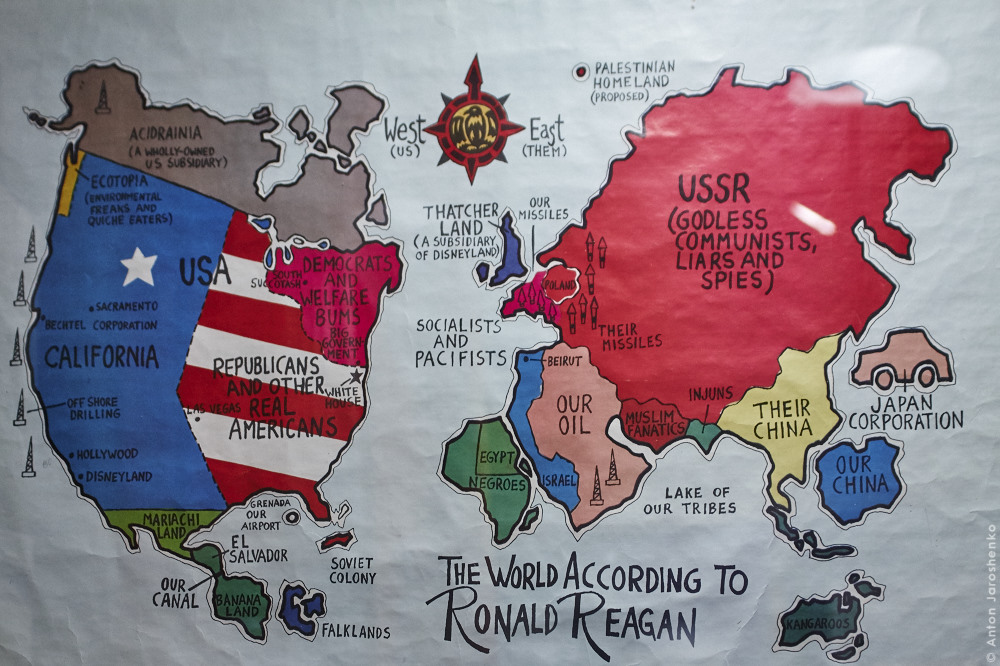 ACIDRAINIA
(A WHOLLY-OWNED
US SUBSIDIARY)
ECOTOPIA
(ENVIRONMENTAL
FREAKS AND
QUICHE EATERS)
USA
SACRAMENTO
BECHTEL CORPORATION
CALIFORNIA
OFF SHORE
DRILLING
HOLLYWOOD
DISNEYLAND
SOUTH
SUCCOTASH
DEMOCRATS
AND
WELFARE
BUMS
BIG
GOVERN-
MENT
REPUBLICANS
AND OTHER
REAL
AMERICANS
WHITE
HOUSE
LAS VEGAS
MARIACHI
LAND
GRENADA
OUR
AIRPORT
EL
SALVADOR
SOVIET
COLONY
OUR
CANAL
BANANA
LAND
FALKLANDS
West
(US)
East
(THEM)
PALESTINIAN
HOMELAND
(PROPOSED)
THATCHER
LAND
(A SUBSIDIARY
OF DISNEYLAND)
OUR
MISSILES
POLAND
SOCIALISTS
AND
PACIFISTS
THEIR
MISSILES
USSR
(GODLESS
COMMUNISTS,
LIARS AND
SPIES)
BEIRUT
OUR
OIL
ISRAEL
EGYPT
NEGROES
MUSLIM
FANATICS
INJUNS
THEIR
CHINA
JAPAN
CORPORATION
OUR
CHINA
LAKE OF
OUR TRIBES
KANGAROOS
THE WORLD ACCORDING TO
RONALD REAGAN
© Anton Jaroshenko